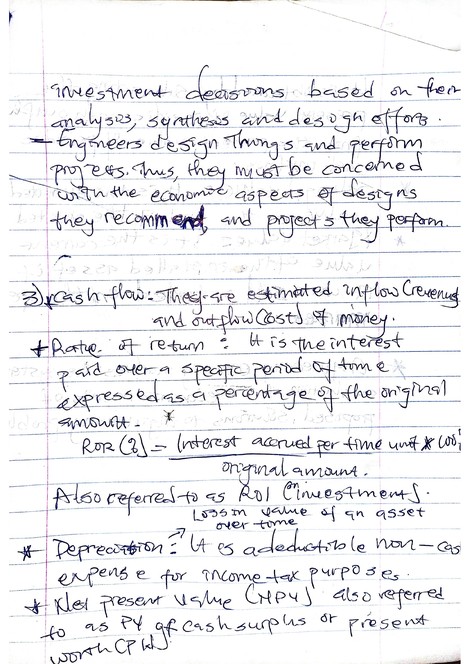 investment decisions based on their
analysis, synthesis and design efforts.
- Engineers design Things and perform
projects. Thus, they must be concerned
with the economic aspects of designs
they recommend, and projects they perform.
3) * cash flow: They are estimated inflow (revenue)
and outflow (costs) of money.
* Rate of return: It is the interest
paid over a specific period of time
expressed as a percentage of the original
amount. *
ROR (%) = Interest accrued per time unit * 100%
original amount.
Also referred to as ROI (on investment).
Loss in value of an asset
over time
* Depreciation: It is a deductible non-cas
expense for income tax purposes.
* Net present value (NPV) also referred
to as PV of cash surplus or present
worth (PW).